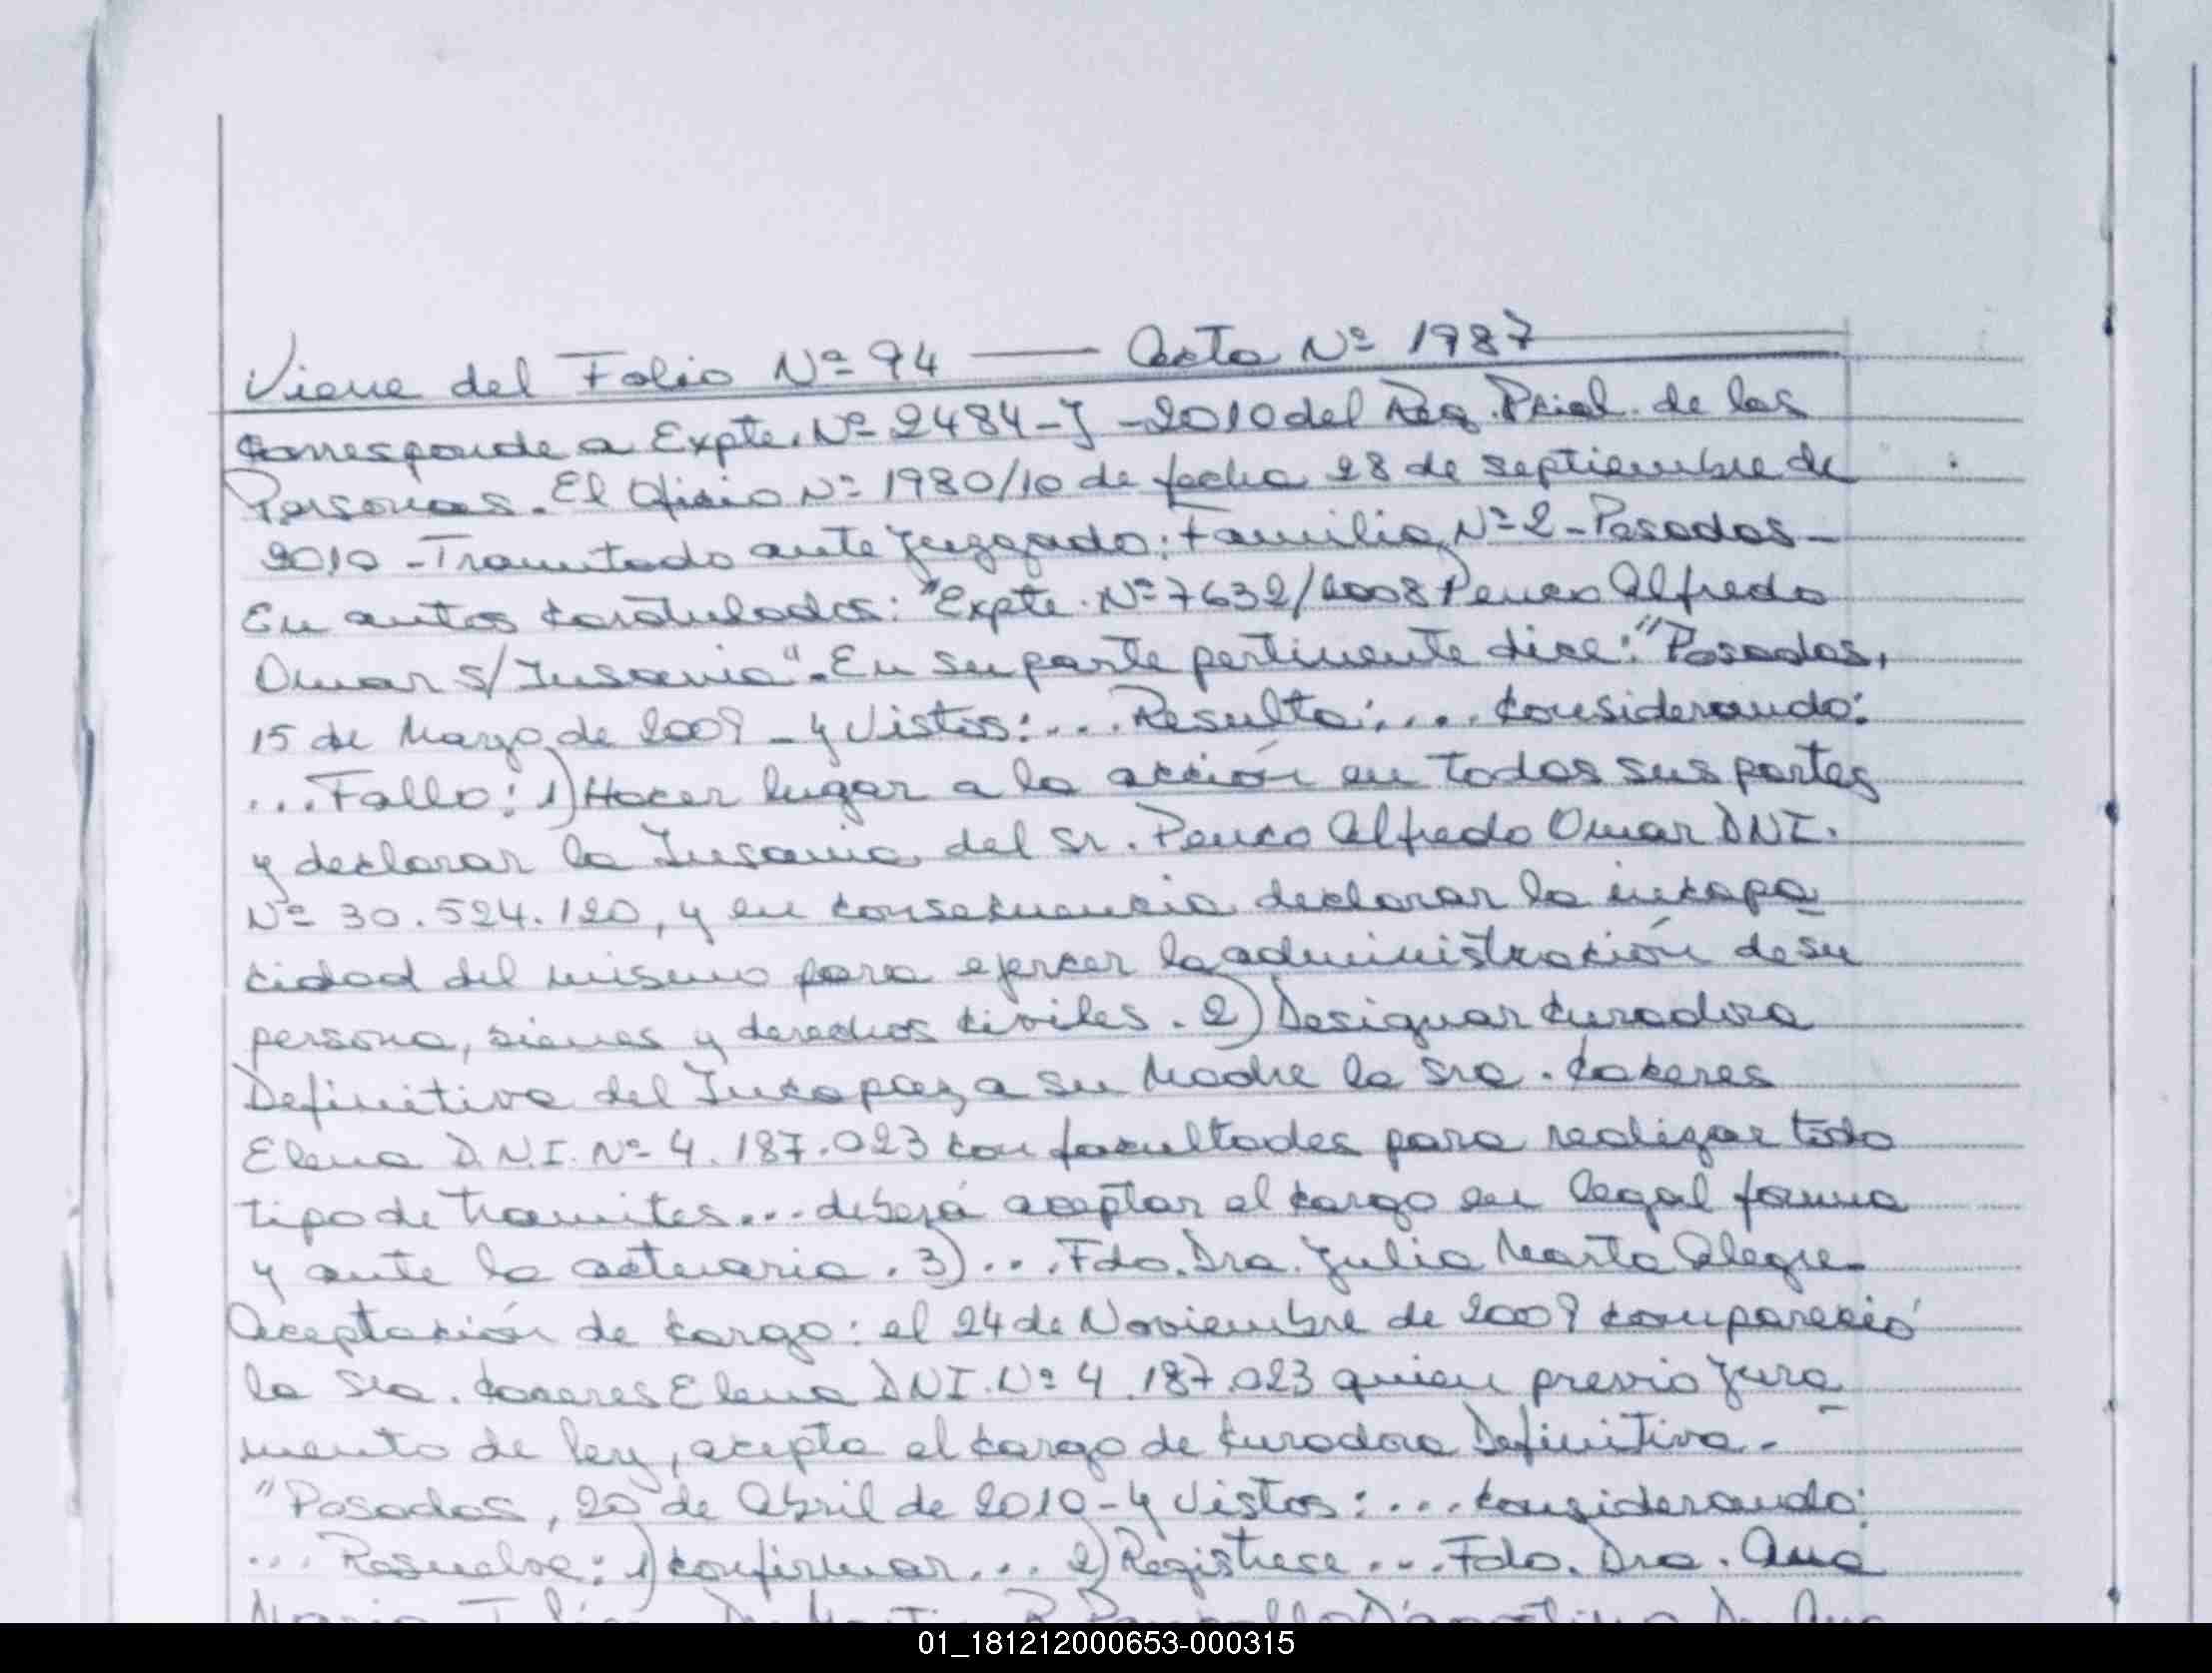 Viene del Folio Nº 94 —— Acta Nº 1987
Corresponde a Expte. Nº 2484-J-2010 del Reg. Pcial. de las
Personas. El Oficio Nº 1980/10 de fecha 28 de septiembre de
2010 - Tramitado ante Juzgado: Familia Nº 2 - Posadas -
En autos Caratulados: "Expte. Nº 7632/2008 Penco Alfredo
Omar S/Insania". En su parte pertinente dice: "Posadas,
15 de Marzo de 2009 - y Vistos: ... Resulta: .... Considerando:
... Fallo: 1) Hacer lugar a la acción en todas sus partes
y declarar la Insania del Sr. Penco Alfredo Omar DNI.
Nº 30.524.120, y en consecuencia declarar la incapa
cidad del mismo para ejercer la administración de su
persona, bienes y derechos civiles. 2) Designar Curadora
Definitiva del Incapaz, a su Madre la Sra. Caceres
Elena D.N.I. Nº 4.187.023 con facultades para realizar todo
tipo de tramites... deberá aceptar el cargo en legal forma
y ante la actuaria. 3) ... Fdo. Dra. Julia Marta Alegre.
Aceptación de cargo: el 24 de Noviembre de 2009 compareció
la Sra. Caceres Elena DNI. Nº 4.187.023 quien previo jura
mento de ley, acepta el cargo de Curadora Definitiva.-
"Posadas, 20 de Abril de 2010 - y Vistos: ... Considerando:
... Resuelve: 1) Confirmar... 2) Registrese... Fdo. Dra. Ana
01_181212000653-000315